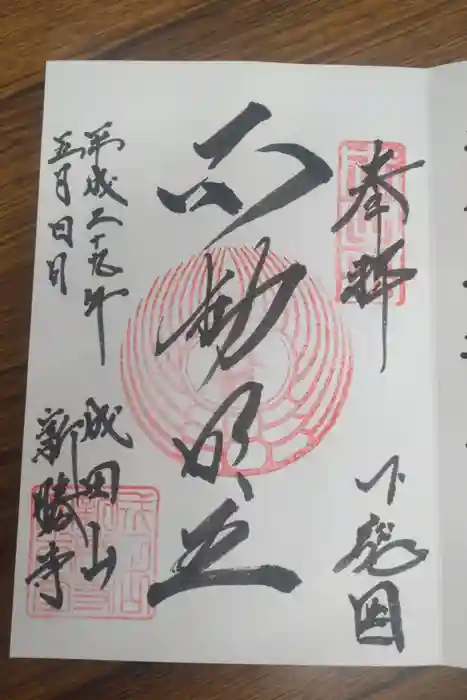 奉拝
下総国
不動明王
平成二十九年
五月 日
成田山
新勝寺